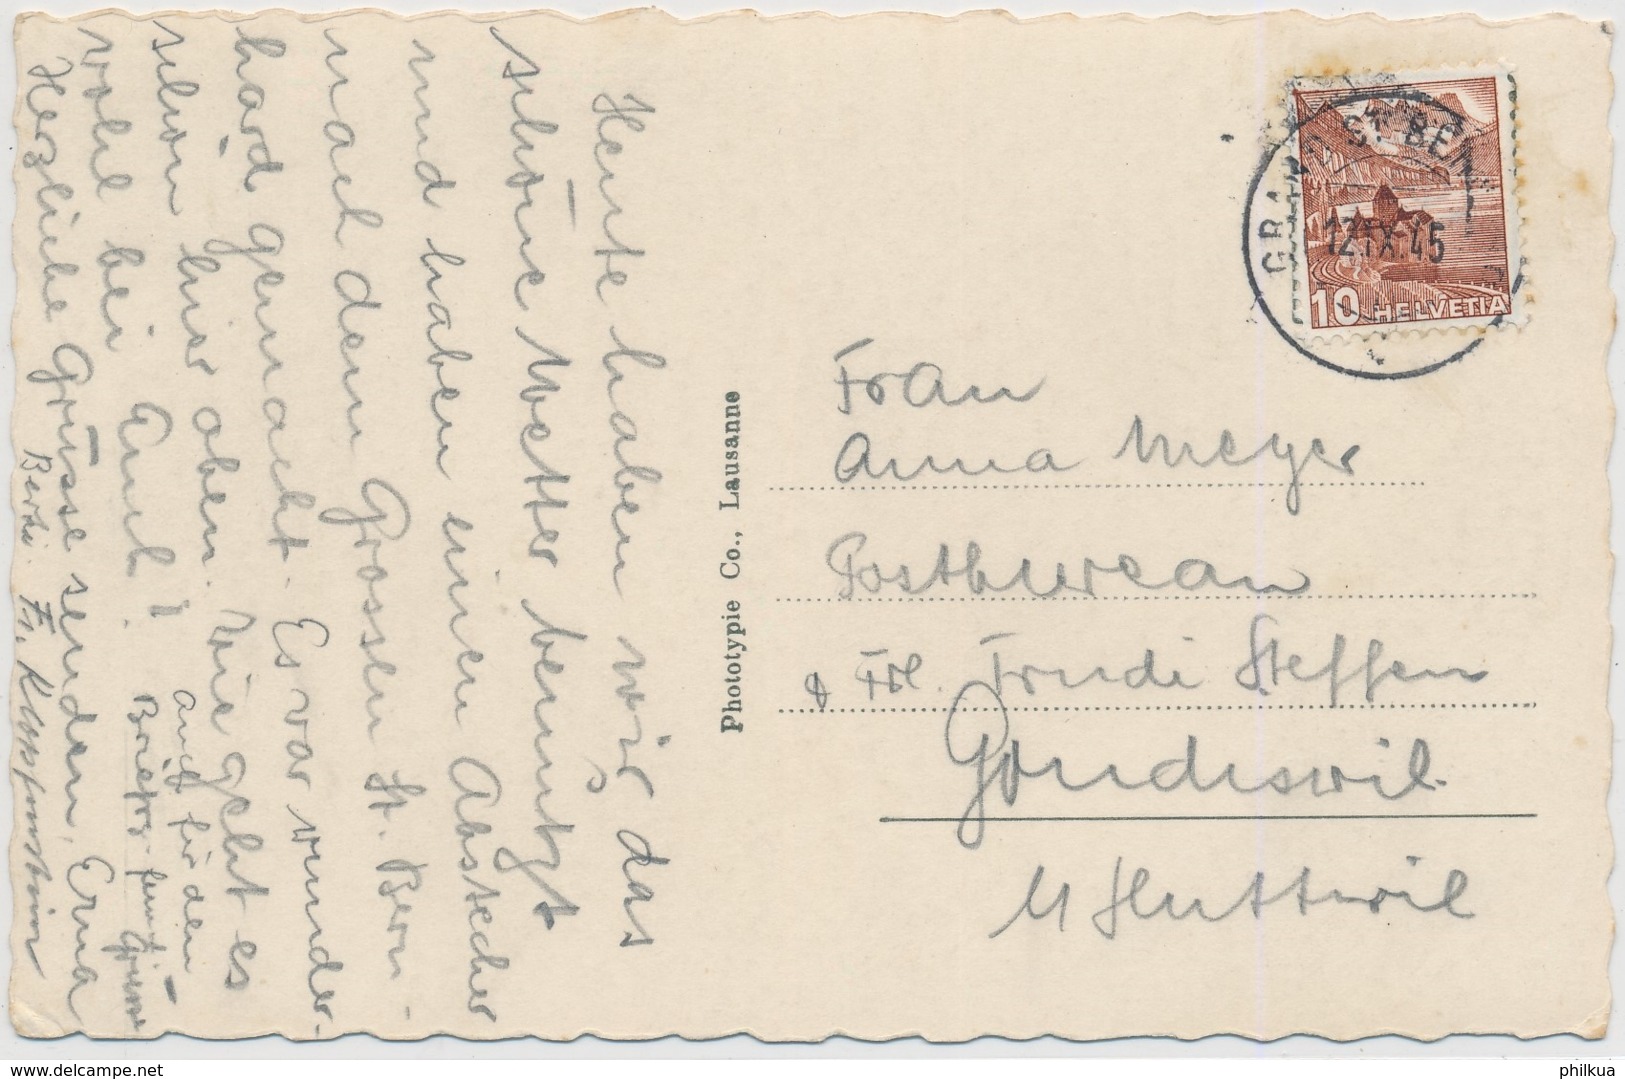 Heute haben wir das
schöne Wetter benutzt
und haben einen Abstecher
nach dem Grossen St. Bern-
hard gemacht. Es war wunder-
schön hier oben. Wie geht es
wohl bei Euch?
Herzliche Grüsse senden, Erna
Berti. Fr.
auch für den
Grüsse
Phototypie Co., Lausanne
GRAND ST BERN
12.IX.45
10 HELVETIA
Frau
Anna Meyer
Postbureau
& Frl. Trudi Steffen
Gondiswil
Huttwil
delcampe.net
philkua